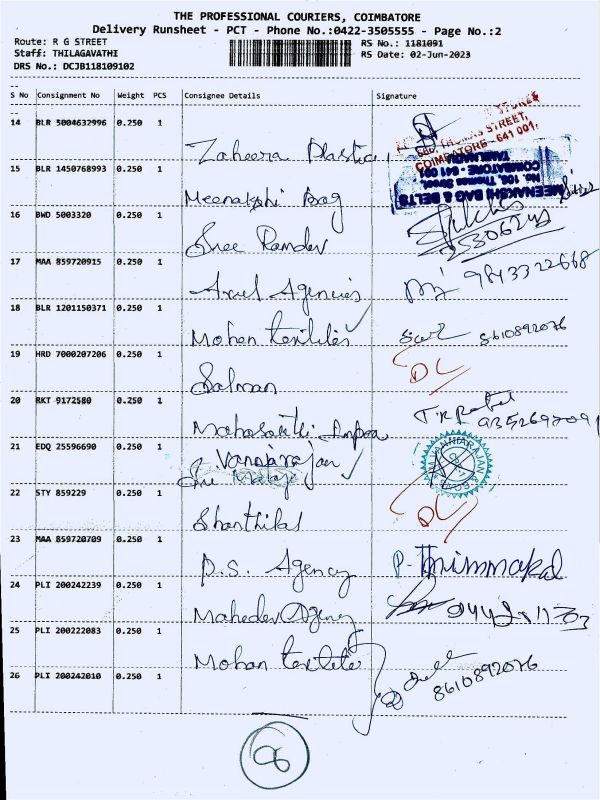 THE PROFESSIONAL COURIERS, COIMBATORE
Delivery Runsheet - PCT - Phone No.:0422-3505555 - Page No.:2
Route: R G STREET
RS No.: 1181091
Staff: THILAGAVATHI
RS Date: 02-Jun-2023
DRS No.: DCJB118109102
S No Consignment No Weight PCS Consignee Details Signature
14 BLR 5004632996 0.250 1
Zaheera Plastic
686, THOMAS STREET,
COIMBATORE - 641 001.
15 BLR 1450768993 0.250 1
Meenakshi Bag
MEENAKSHI BAG & BELTS
No. 108, Thomas Street,
COIMBATORE - 641 001
TAMILNADU
16 BWD 5003320 0.250 1
Sree Ramdev
17 MAA 859720915 0.250 1
Arul Agencies
9843322668
18 BLR 1201150371 0.250 1
Mohan textiles
8610892076
19 HRD 7000207206 0.250 1
Salman
DL
20 RKT 9172580 0.250 1
Mahasakthi Impex
T.R Patel
21 EDQ 25596690 0.250 1
Vanajarajan
22 STY 859229 0.250 1
Shanthilal
DL
23 MAA 859720709 0.250 1
P.S. Agency
P. Thimmakal
24 PLI 200242239 0.250 1
Mahedev Agency
25 PLI 200222083 0.250 1
Mohan textiles
8610892076
26 PLI 200242010 0.250 1